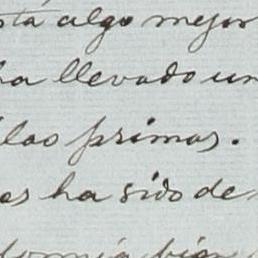 está algo mejor
ha llevado un
las primas.
es ha sido de